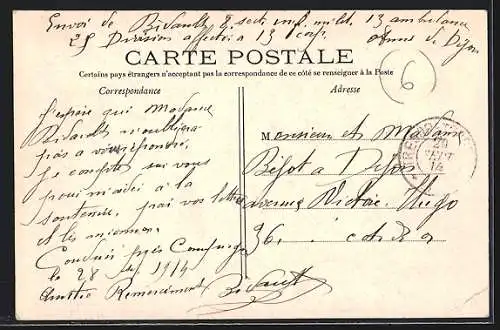 Envoi de Bidault, 8 sect inf milit. 13 ambulance
25 Division affecté à 13 corps. Dijon
CARTE POSTALE
Certains pays étrangers n'acceptant pas la correspondance de ce côté se renseigner à la Poste
Correspondance
Adresse
6
j'espère que Madame
Bidault n'oubliera
pas a vous répondre,
Je compte sur vous
pour m'aider à la
soutenir, j'ai vos lettres
et les anciennes.
près Compiègne
le 28 1914
Remerciements Bidault
Monsieur et Madame
Bégot a Dijon
avenue Victor Hugo
36. cote d or